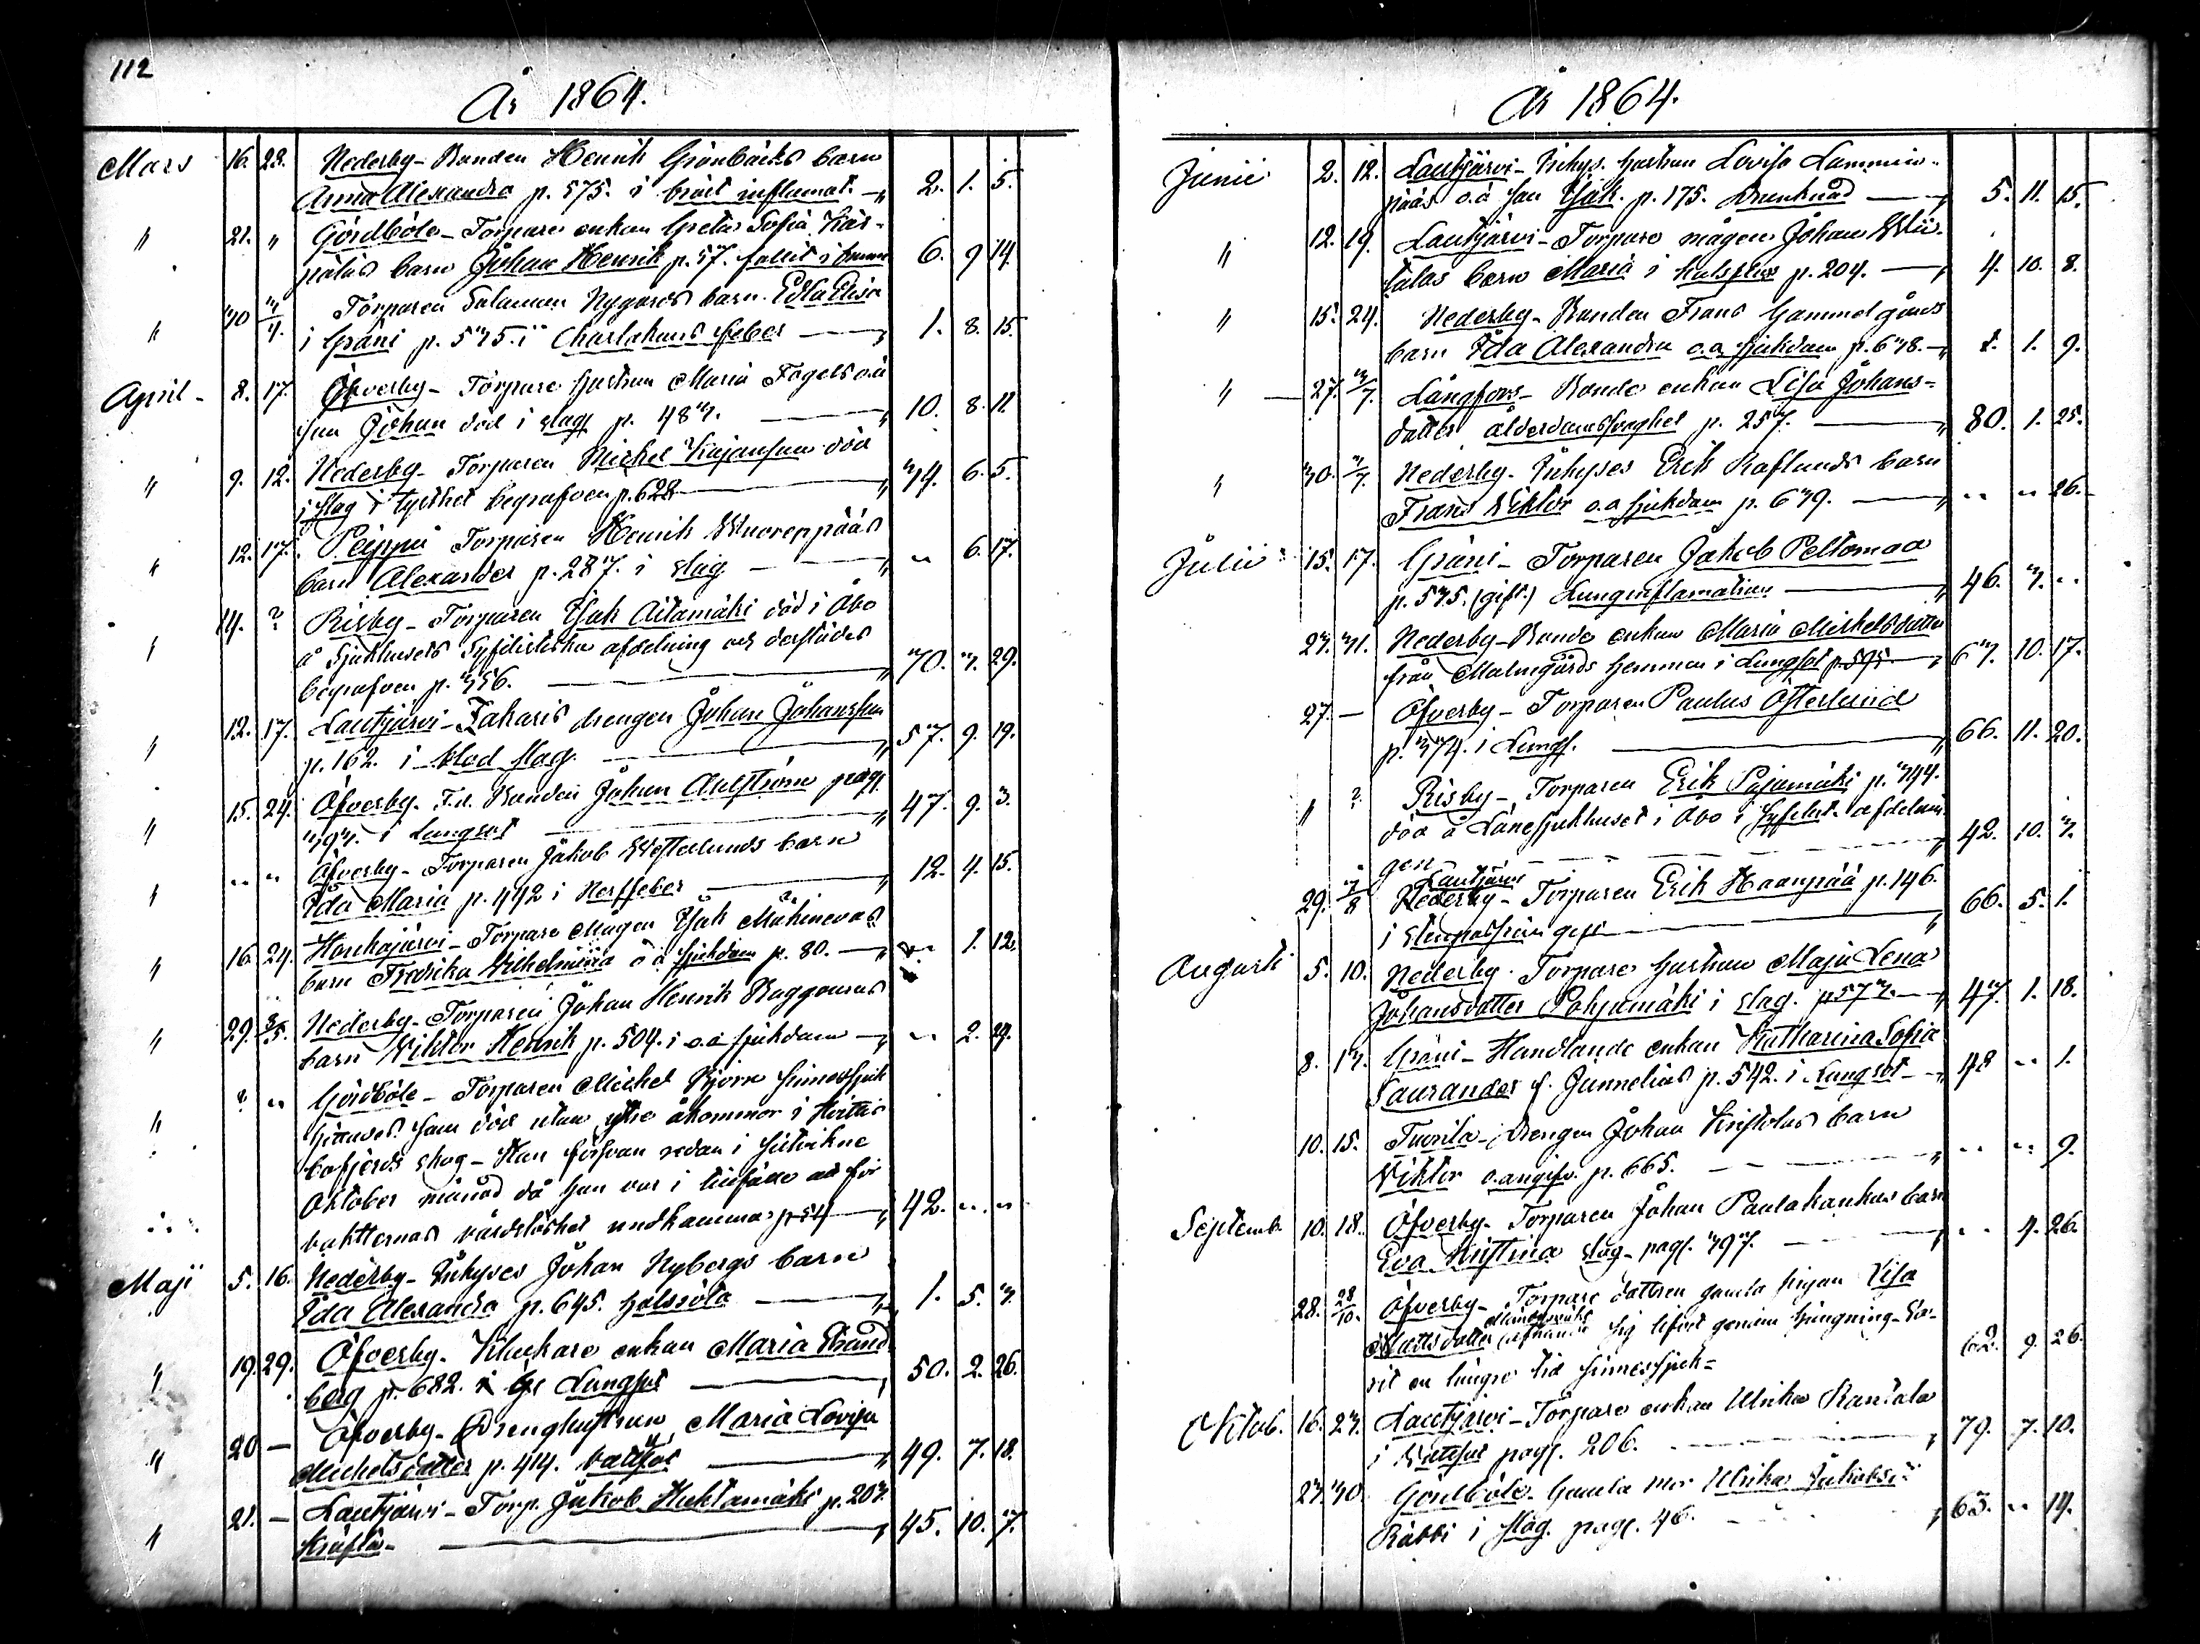 112
År 1864.
Mars 16. 28. Nederby - Bonden Henrik Grönbäcks barn
Anna Alexandra p. 575. i bröst inflamat. — 2. 1. 5.
" 21. " Gördböle - Torpare enkan Greta Sofia
barn Johan Henrik p. 57. fallit i 6. 9 14.
" 30 3/4. Torparen Salamon Nygårds barn Edla Elisa
i Gräni p. 535. i Charlakans feber — 1. 8. 15.
April - 8. 17. Öfverby - Torpare hustrun Maria Fogels o.ä
son Johan död i slag p. 483. — 10. 8. 11.
" 9. 12. Nederby - Torparen Michel Kajanson död
i slag i tysthet begrafven p. 628 — 34. 6. 5.
" 12. 17. Peippu Torparen Henrik Wuorenpääs
barn Alexander p. 287. i slag — " 6. 17.
" 14. ? Risby - Torparen Isak Aitamäki död i Åbo
å Sjukhusets Syfilitiska afdelning och derstädes
begrafven p. 356. — 30. 3. 29.
" 12. 17. Lautjärvi - Zakaris drengen Johan Johansson
p. 162. i blod slag. — 57. 9. 19.
" 15. 24. Öfverby. F.d. Bonden Johan Ahlström pag.
393. i Lungsot — 47. 9. 3.
" " " Öfverby - Torparen Jakob Westerlunds barn
Ida Maria p. 442 i Nerffeber — 12. 4. 15.
" 16. 24. Honkajärvi - Torpare Mågen Isak Mäkinens
barn Fredrika Wilhelmina o ä sjukdom p. 80. — " 1. 12.
" 29. 8/5. Nederby - Torparen Johan Henrik Raggounas
barn Viktor Henrik p. 504. i o.ä sjukdom — " 2. 24.
" ? " Gördböle - Torparen Michel Björn sinnessjuk
som död utan yttre åkommor i Hvittis
bofjerds skog - Han försvan redan i
Oktober månad då han var i tillfälle att för
vakternas vårdslöshet undkomma p. 54 — 42. " "
Maji 5. 16. Nederby - Inhyses Johan Nybergs barn
Ida Alexandra p. 645. halssöta — 1. 5. 3.
" 19. 29. Öfverby. Klockare enkan Maria Strand
berg p. 682. i Lungsot — 50. 2. 26.
" 20 — Öfverby - Drenghustrun Maria Lovisa
Michelsdotter p. 414. Vattsot — 49. 7. 18.
" 21. — Lautjärvi - Torp. Jakob Huhtamäki p. 203.
Kräfta — 45. 10. 7.
År 1864.
Junii 2. 12. Lautjärvi - Inhys. hustrun Lovisa Lammin-
pääs o.ä son Isak. p. 175. Drunknad — 5. 11. 15.
" 12. 19. Lautjärvi - Torpare mågen Johan Wii-
talas barn Maria i halsfluss p. 204. — 4. 10. 8.
" 15. 24. Nederby - Bonden Frans Gammelgårds
barn Ida Alexandra o.a sjukdom p. 638. — 1. 1. 9.
" — 27. 3/7. Långfors - Bonde enkan Lisa Johans-
dotter ålderdomssvaghet p. 257. — 80. 1. 25.
" 30. 3/7. Nederby - Inhyses Erik Kaflunds barn
Frans Viktor o.a sjukdom p. 639. — " " 26.
Julii 15. 17. Gräni - Torparen Jakob Peltomaa
p. 535. (gift.) Lunginflamation — 46. 3. "
23. 31. Nederby - Bonde enkan Maria Michelsdotter
från Malmgårds hemman i Lungsot p. 595. — 63. 10. 17.
27. — Öfverby - Torparen Paulus Österlund
p. 374. i Lungs. — 66. 11. 20.
" ? Risby - Torparen Erik Pajumäki p. 344.
död å Länesjukhuset i Åbo i Syfilit. afdelnin
gen — 42. 10. 3.
Lautjärvi
29. 7/8 Nederby - Torparen Erik Haanpää p. 146.
i stenpassion gift — 66. 5. 1.
Augusti 5. 10. Nederby - Torpare hustrun Maja Lena
Johansdotter Pohjamäki i slag. p. 573. — 47. 1. 18.
8. 13. Gräni - Handlande enkan Katharina Sofia
Laurander f. Junnelius p. 542. i Lungsot — 48 " 1.
10. 15. Tuorila - Drengen Johan Kristolas barn
Viktor o.angifv. p. 665. — " " 9.
Septemb. 10. 18. Öfverby - Torparen Johan Paulakankas barn
Eva Kristina slag - pag. 397. — " 4. 26.
28. 28/10. Öfverby - Torpare dottren gamla pigan Lisa
Mattsdotter afhändt sig lifvet genom hängning - Va-
rit en längre tid sinnessjuk = 62. 9. 26.
Oktob. 16. 23. Lautjärvi - Torpare enkan Ulrika Rantala
i Vattsot pag. 206. — 79. 7. 10.
23. 30. Gördböle - Gamla mor Ulrika Jakobsd:r
Räbbi i slag. pag. 46. — 63. " 14.